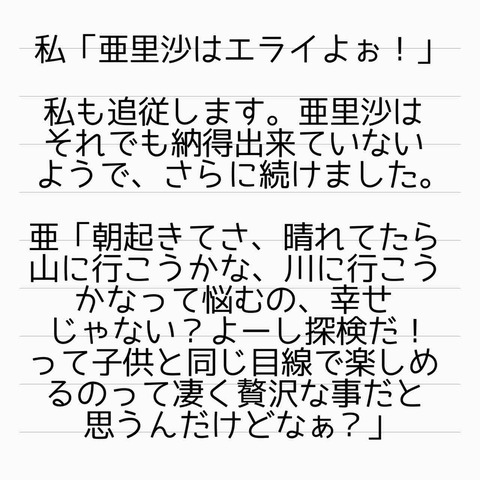 私「亜里沙はエライよぉ！」
私も追従します。亜里沙は
それでも納得出来ていない
ようで、さらに続けました。
亜「朝起きてさ、晴れてたら
山に行こうかな、川に行こう
かなって悩むの、幸せ
じゃない？よーし探検だ！
って子供と同じ目線で楽しめ
るのって凄く贅沢な事だと
思うんだけどなぁ？」